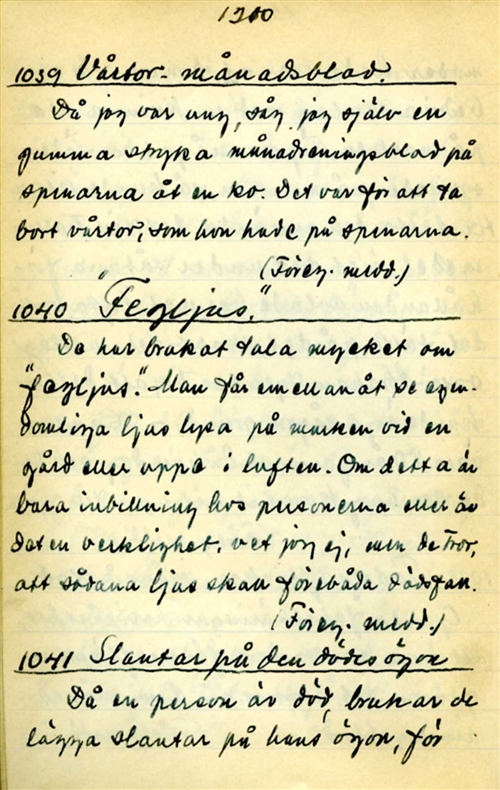 1200
1039 Vårtor - månadsblod.
Då jag var ung, såg jag själv en
gumma stryka månadreningsblod på
spenarna åt en ko. Det var för att ta
bort vårtor, som hon hade på spenarna.
(Föreg. medd.)
1040 "Fegljus."
De har brukat tala mycket om
"fegljus". Man får emellanåt se egen-
domliga ljus lysa på marken vid en
gård eller uppe i luften. Om detta är
bara inbillning hos personerna eller är
det en verklighet, vet jag ej, men de tror,
att sådana ljus skall förebåda dödsfall.
(Föreg. medd.)
1041 Slantar på den dödes ögon
Då en person är död, brukar de
lägga slantar på hans ögon, för